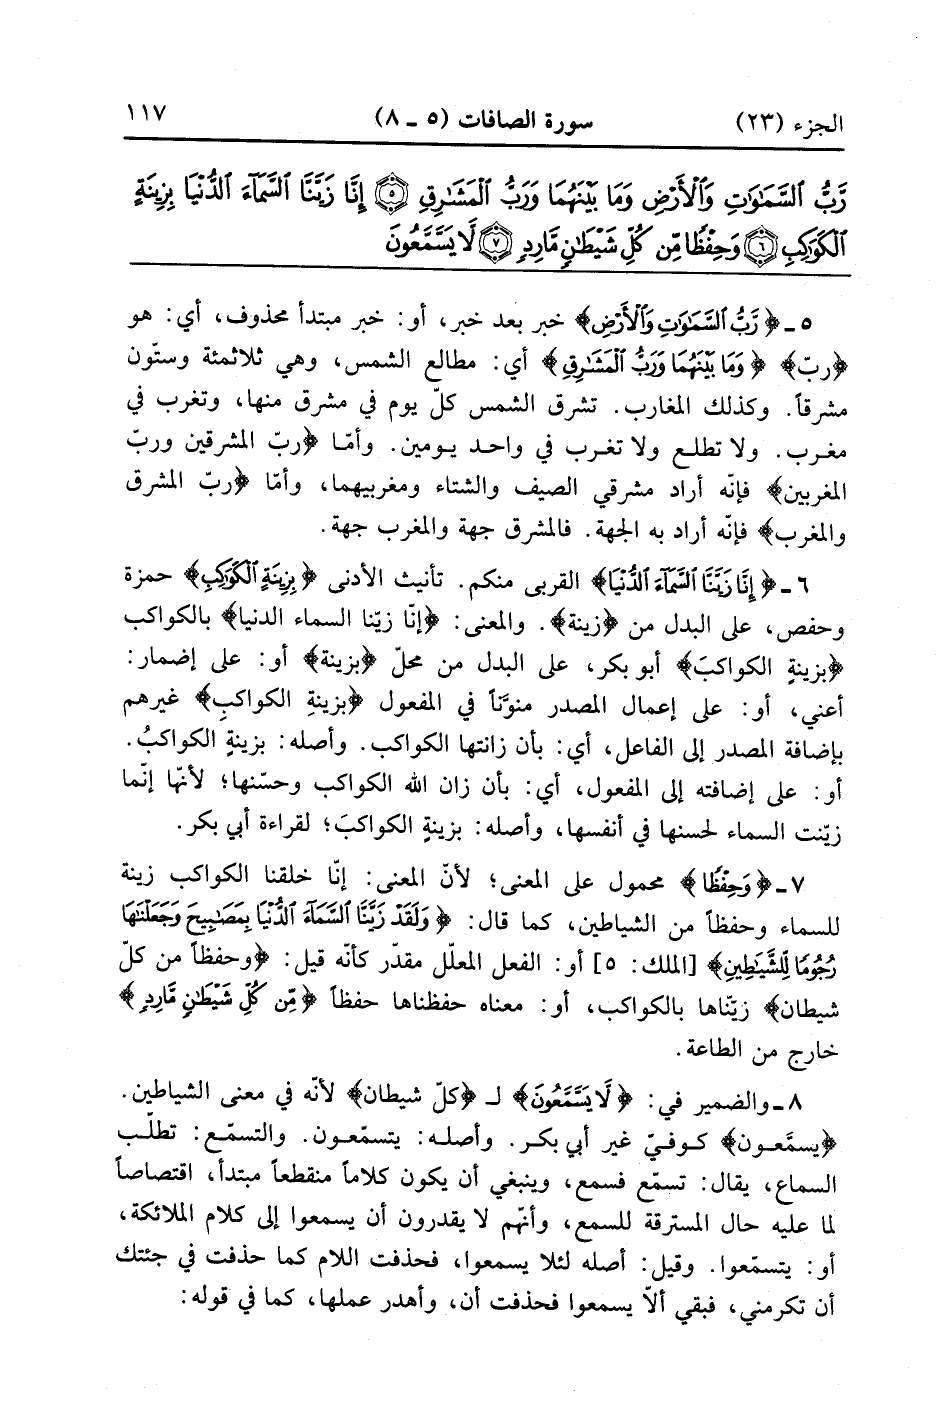 الجزء (٢٣) سورة الصافات (٥ - ٨) ١١٧
رَّبُّ ٱلسَّمَٰوَٰتِ وَٱلْأَرْضِ وَمَا بَيْنَهُمَا وَرَبُّ ٱلْمَشَٰرِقِ ٥ إِنَّا زَيَّنَّا ٱلسَّمَآءَ ٱلدُّنْيَا بِزِينَةٍ
ٱلْكَوَاكِبِ ٦ وَحِفْظًا مِّن كُلِّ شَيْطَٰنٍ مَّارِدٍ ٧ لَا يَسَّمَّعُونَ
٥ ـ ﴿رَّبُّ السَّمَٰوَٰتِ وَٱلْأَرْضِ﴾ خبر بعد خبر، أو: خبر مبتدأ محذوف، أي: هو
﴿ربّ﴾ ﴿وَمَا بَيْنَهُمَا وَرَبُّ ٱلْمَشَٰرِقِ﴾ أي: مطالع الشمس، وهي ثلاثمئة وستّون
مشرقاً. وكذلك المغارب. تشرق الشمس كلّ يوم في مشرق منها، وتغرب في
مغرب. ولا تطلع ولا تغرب في واحد يومين. وأمّا ﴿ربّ المشرقين وربّ
المغربين﴾ فإنّه أراد مشرقي الصيف والشتاء ومغربيهما، وأمّا ﴿ربّ المشرق
والمغرب﴾ فإنّه أراد به الجهة. فالمشرق جهة والمغرب جهة.
٦ ـ ﴿إِنَّا زَيَّنَّا ٱلسَّمَآءَ ٱلدُّنْيَا﴾ القربى منكم. تأنيث الأدنى ﴿بِزِينَةٍ ٱلْكَوَاكِبِ﴾ حمزة
وحفص، على البدل من ﴿زينة﴾. والمعنى: ﴿إنّا زيّنا السماء الدنيا﴾ بالكواكب
﴿بزينةٍ الكواكبَ﴾ أبو بكر، على البدل من محلّ ﴿بزينة﴾ أو: على إضمار:
أعني، أو: على إعمال المصدر منوّناً في المفعول ﴿بزينةِ الكواكبِ﴾ غيرهم
بإضافة المصدر إلى الفاعل، أي: بأن زانتها الكواكب. وأصله: بزينةٍ الكواكبُ.
أو: على إضافته إلى المفعول، أي: بأن زان الله الكواكب وحسّنها؛ لأنّها إنّما
زيّنت السماء لحسنها في أنفسها، وأصله: بزينةٍ الكواكبَ؛ لقراءة أبي بكر.
٧ ـ ﴿وَحِفْظًا﴾ محمول على المعنى؛ لأنّ المعنى: إنّا خلقنا الكواكب زينة
للسماء وحفظاً من الشياطين، كما قال: ﴿وَلَقَدْ زَيَّنَّا ٱلسَّمَآءَ ٱلدُّنْيَا بِمَصَٰبِيحَ وَجَعَلْنَٰهَا
رُجُومًا لِّلشَّيَٰطِينِ﴾ [الملك: ٥] أو: الفعل المعلّل مقدّر كأنّه قيل: ﴿وحفظاً من كلّ
شيطان﴾ زيّنّاها بالكواكب، أو: معناه حفظناها حفظاً ﴿مِّن كُلِّ شَيْطَٰنٍ مَّارِدٍ﴾
خارج من الطاعة.
٨ ـ والضمير في: ﴿لَا يَسَّمَّعُونَ﴾ لـ ﴿كلّ شيطان﴾ لأنّه في معنى الشياطين.
﴿يسمَّعون﴾ كوفيّ غير أبي بكر. وأصله: يتسمّعون. والتسمّع: تطلّب
السماع، يقال: تسمّع فسمع، وينبغي أن يكون كلاماً منقطعاً مبتدأ، اقتصاصاً
لما عليه حال المسترقة للسمع، وأنّهم لا يقدرون أن يسمعوا إلى كلام الملائكة،
أو: يتسمّعوا. وقيل: أصله لئلا يسمعوا، فحذفت اللام كما حذفت في جئتك
أن تكرمني، فبقي ألاّ يسمعوا فحذفت أن، وأهدر عملها، كما في قوله: